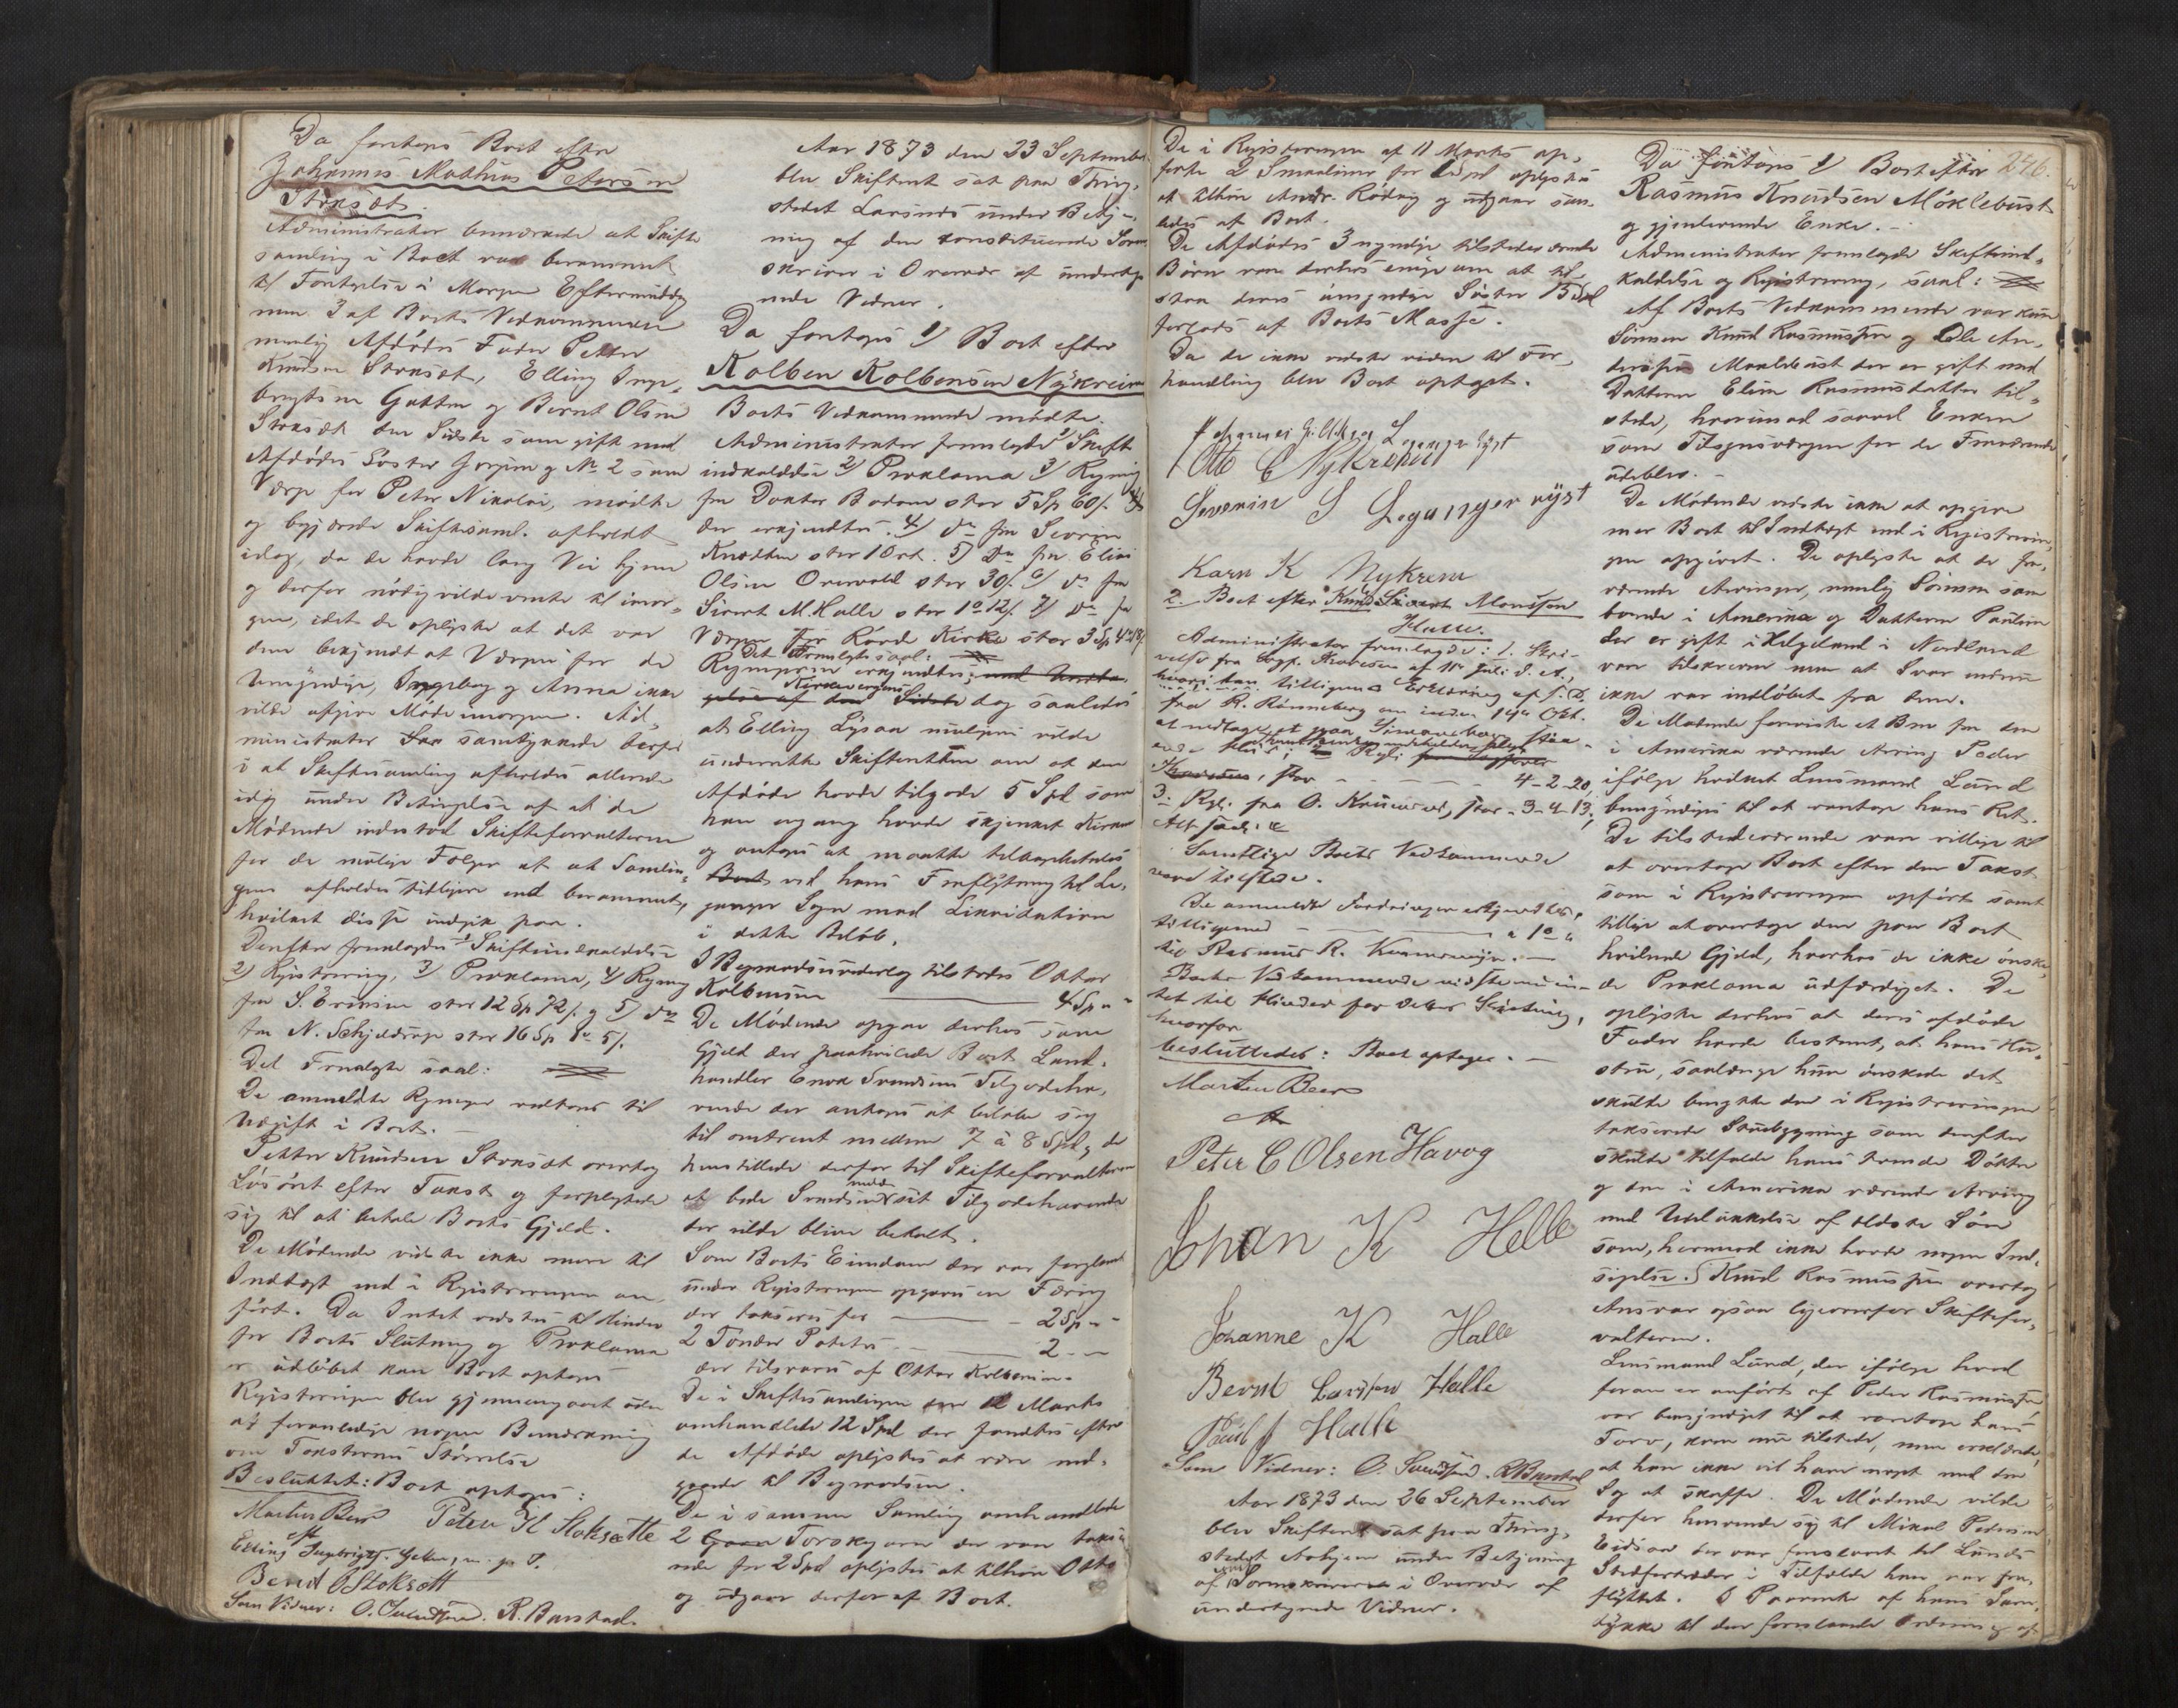 Da foretoges Boet efter
Johannes Mathias Petersen
Stoksæt.
Administrator bemærkede at Skifte
samling i Boet var berammet
til Foretagelse i Morgen Eftermiddag
men 3 af Boets Vedkommende
nemlig Afdødes Fader Petter
Knudsen Stoksæt, Elling Inge-
brigtsen Gjetten og Bernt Olsen
Stoksæt den Sidste som gift med
Afdødes Søster Jørgine og No 2 som
Værge for Peter Nikolai, mødte
og begjærede Skiftesaml. afholdt
idag, da de havde lang Vei hjem
og derfor nødig vilde vente til imor-
gen, idet de oplyste at det var
dem bekjendt at Værgen for de
Umyndige, Ingeborg og Anna ikke
vilde afgive Møde imorgen. Ad-
ministrator samtykkede derfor
i at Skiftesamling afholdes allerede
idag under Betingelse af at de
Mødende indestod Skifteforvalteren
for de mulige Følger af at Samlin-
gen afholdes tidligere end berammet,
hvilket disse indgik paa.
Derefter fremlagdes 1) Skifteindkaldelse
2) Registrering, 3) Proklama, 4) Regning
fra S. Eriksen stor 12 Sp 72 s. og 5) do
fra N. Schjeldrup stor 16 Sp 1 o 5 s.
Det Fremlagte saal:
De anmeldte Regninger vedtoges til
Udgift i Boet.
Petter Knudsen Stoksæt overtog
Løsøret efter Taxst og forpligtede
sig til at betale Boets Gjeld.
De Mødende vidste ikke mere til
Indtægt end i Registreringen an-
ført. Da Intet vidstes til Hinder
for Boets Slutning og Proklama
er udløbet kan Boet optages
Registreringen blev gjennemgaaet uden
at foranledige nogen Bemærkning
om Taksternes Størrelse
Besluttet: Boet optages:
Martin Beer Peter K Stoksætte
Elling Ingbrigts. Gjetten, m. p. P.
Bernt O Stoksætt
Som Vidner: O. Svendsen. R. Barstad.
Aar 1873 den 23 September
blev Skifteret sat paa Thing-
stedet Larsnes under Betje-
ning af den constituerede Soren
skriver i Overvær af underteg-
nede Vidner.
Da foretoges 1) Boet efter
Kolben Kolbensen Nykreim
Boets Vedkommende mødte.
Administrator fremlagde 1) Skifte
indkaldelse 2) Proklama 3) Regning
fra Doktor Bodom stor 5 Sp 60 s.
der erkjendtes. 4) do fra Severin
Knotten stor 1 Ort. 5) Do fra Elias
Olsen Overvold stor 30 s. 6) do fra
Sivert M. Halle stor 1 o 12 s. 7) do fra
Værgen for Rovde Kirke stor 3 Sp 4 o 18 s
Det Fremlagte saal:
Regningerne erkjendtes, med Undta-
gelse af den Sidste dog saaledes
Kirkeværgens
at Elling Lysaa muligens vilde
underrette Skifteretten om at den
Afdøde havde tilgode 5 Spd som
han engang havde skjenket Kirken
og antoges at maatte tilbagebetales
Boet ved hans Fraflytning til Le-
ganger Sogn med Likvidation
i dette Beløb.
I Begravelsesudlæg tilstedes Ottar
Kolbensen — 4 Sp " "
De Mødende opgav derhos som
Gjeld der paahvilede Boet Land-
handler Enok Svendsens Tilgodeha-
vende der antoges at beløbe sig
til omtrent mellem 7 à 8 Spd, de
henstillede derfor til Skifteforvalteren
at bede Svendsen melde sit Tilgodehavende
der vilde blive betalt.
Som Boets Eiendom der var forglemt
under Registreringen opgaves en Færing
der takseres for — 2 Sp " "
2 Tønder Poteter — 2 " "
der tilsvares af Ottar Kolbensen.
De i Skiftesamlingen 11 Marts
omhandlede 12 Spd der fandtes efter
de Afdøde oplystes at være med-
gaaede til Begravelsen.
De i samme Samling omhandlede
2 Torskegarn der var takse-
rede for 2 Spd oplystes at tilhøre Otto
og udgaar derfor af Boet.
De i Registreringen af 11 Marts op-
førte 2 Smaalinier for 1 Spd oplystes
at tilhøre Andr. Rødvig og udgaar saa-
ledes af Boet.
De Afdødes 3 myndige tilstedeværende
Børn var derhos enige om at til-
staa deres umyndige Søster 15 Spd
forlods af Boets Masse.
Da de ikke vidste videre til For-
handling blev Boet optaget.
Otto C Nykreim
Severin S Leganger ryst
Karn K Nykrem
2. Boet efter Knud Sivert Monssøn
Halle.
Administrator fremlagde: 1. Skri-
velse fra Sogp. Thoresen af 10 Juli d. A.,
hvori tan tilligemed Erklæring af s. D.
fra R. Rønneberg om inden 14de Okt.
at modtage et paa
4 - 2 - 20,
3. Regl. fra O. Knudsen, stor - 3 - 4 - 13,
Alt saal:
Samtlige Boets Vedkommende
vare tilstede.
De anmeldte Fordringer erkjendtes,
tilligemed — " 1 o "
til Rasmus R.
Boets Vedkommende vidste nu in-
tet til Hinder for dettes Slutning,
hvorfor
besluttedes: Boet optages. —
Martin Beer
Peter C Olsen Havog
Johan K Helle
Johanne K Halle
Bernt Larssen Halle
Paul J Halle
Som Vidner: O. Svendsen. R Barstad
Aar 1873 den 26 September
blev Skifteret sat paa Thing-
stedet Aahjem under Betjening
af Sorenskriveren i Overvær af
undertegnede Vidner.
246.
Da foretoges 1) Boet efter
Rasmus Knudsen Møklebust
og gjenlevende Enke. —
Administrator fremlagde Skifteind-
kaldelse og Registrering, saal:
Af Boets Vedkommende var kun
Sønnen Knud Rasmussen og Ole An-
dersen Møklebust der er gift med
Datteren Eline Rasmusdatter til-
stede, hvorimod saavel Enken
som Tilsynsværgen for de Fraværende
udeblev. —
De Mødende vidste ikke at opgive
mer Boet til Indtægt end i Registrerin-
gen opgivet. De oplyste at de fra-
værende Arvinger, nemlig Sønnen som
boede i Amerika og Datteren Pauline
der er gift i Helgeland i Nordland
var tilskrevne men at Svar endnu
ikke var indløbet fra dem.
De Mødende foreviste et Brev fra den
i Amerika værende Arving Peder
ifølge hvilket Lensmand Lund
bemyndiges til at varetage hans Ret.
De tilstedeværende var villige til
at overtage Boet efter den Takst
som i Registreringen opført samt
tillige at overtage den paa Boet
hvilende Gjeld, hvorhos de ikke ønske-
de Proklama udfærdiget. De
oplyste derhos at deres afdøde
Fader havde bestemt, at hans Hu-
stru, saalænge hun ønskede det
skulde benytte den i Registreringen
takserede Stuebygning som derefter
skulde tilfalde hans tvende Døttre
og den i Amerika værende Arving
med Udelukkelse af Ældste Søn
som, hvorimod ikke havde nogen Ind-
sigelse. Knud Rasmussen overtog
Ansvar ogsaa ligeoverfor Skiftefor-
valteren.
Lensmand Lund, der ifølge hvad
foran er anført af Peder Rasmussen
var bemyndiget til at varetage hans
Tarv, kom nu tilstede, men erklærede
at han ikke vil have noget med den
Sag at skaffe. De Mødende vilde
derfor henvende sig til Mikal Pedersen
Eidsaa der var foreslaaet til Lunds
Stedfortræder i Tilfælde han var fra-
flyttet. I Paavente af hans Sam-
tykke til den foreslaaede Ordning af